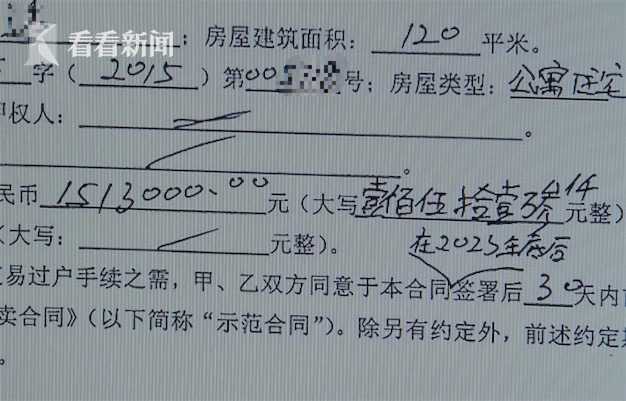 看看新闻
；房屋建筑面积： 120 平米。
字（ 2015 ）第005 号；房屋类型： 公寓住宅
权人：
。
民币 1513000.00 元（大写壹佰伍拾壹 叁 元整）
（大写： 元整）。
在2023年底后
易过户手续之需，甲、乙双方同意于本合同签署后 30 天内
卖合同》（以下简称“示范合同”）。除另有约定外，前述约定
。